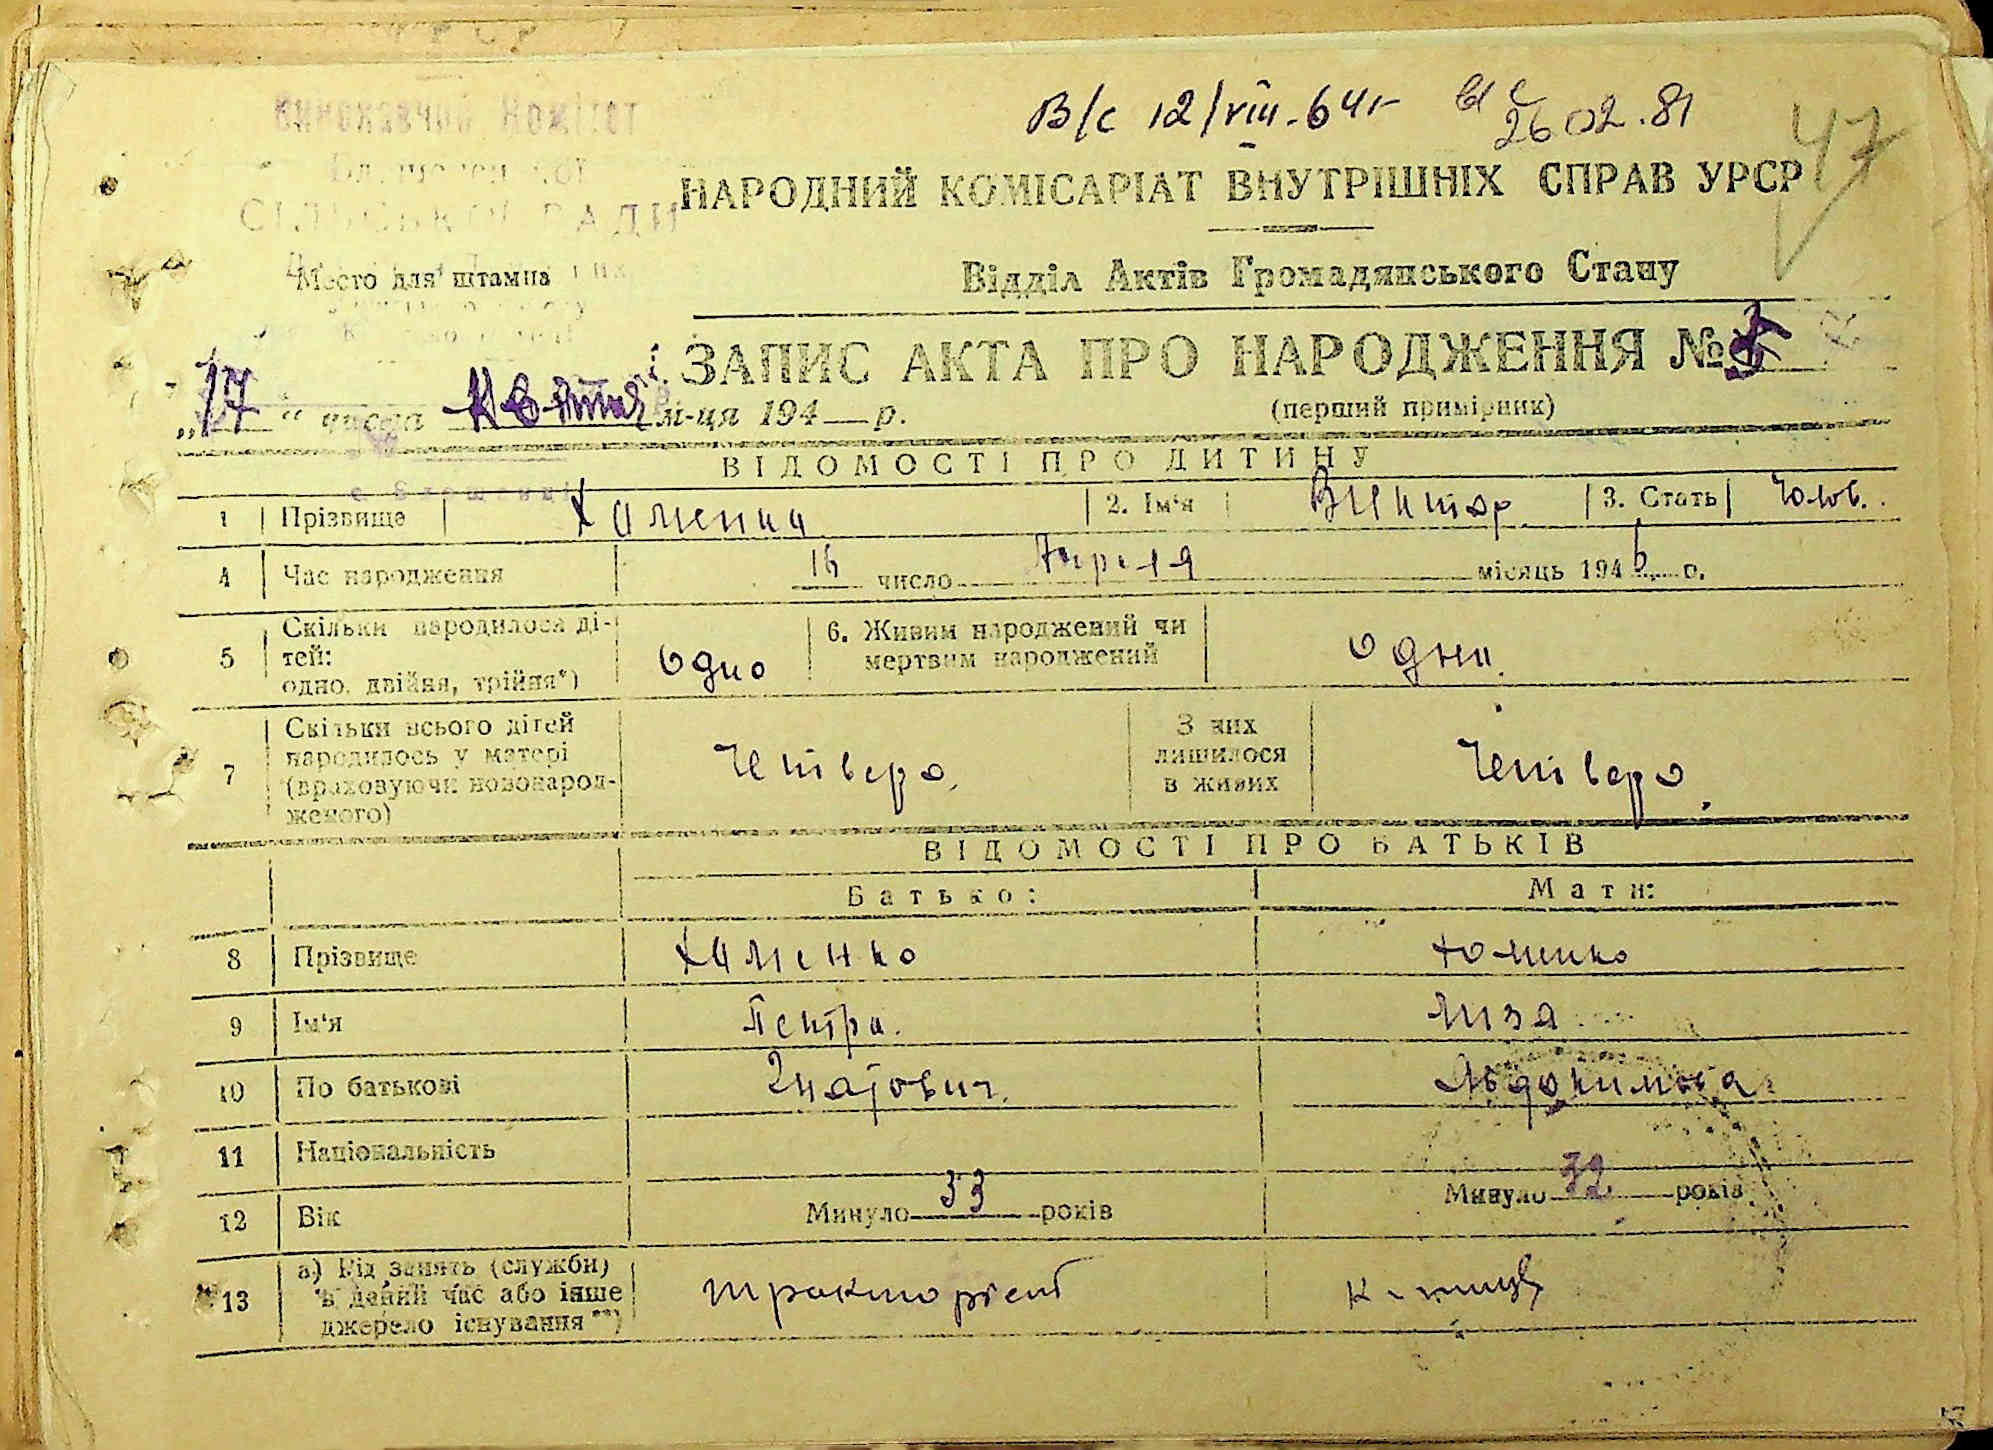 В/с 12/VIII-64г в/с 26 02.81
47
Виконавчий Комітет
СІЛЬСЬКОЇ РАДИ
НАРОДНИЙ КОМІСАРІАТ ВНУТРІШНІХ СПРАВ УРСР
Место для штампа
Відділ Актів Громадянського Стану
ЗАПИС АКТА ПРО НАРОДЖЕННЯ № 5
„17“ числа м-ця 194 р.
(перший примірник)
ВІДОМОСТІ ПРО ДИТИНУ
1 Прізвище Хоменко 2. Ім'я Виктор 3. Стать Чолов.
4 Час народження 16 число Апреля місяць 1946 р.
5 Скільки народилося ді-
тей:
одно, двійня, трійня*) Одно 6. Живим народжений чи
мертвим народжений
7 Скільки всього дітей
народилось у матері
(враховуючи новонарод-
женого) Четверо. З них
лишилося
в живих Четверо.
ВІДОМОСТІ ПРО БАТЬКІВ
Батько: Мати:
8 Прізвище Хоменко Хоменко
9 Ім'я Петро. Лиза
10 По батькові
11 Національність
12 Вік Минуло 33 років Минуло 32 років
13 а) Рід занять (служби)
в даний час або інше
джерело існування**) тракторіст